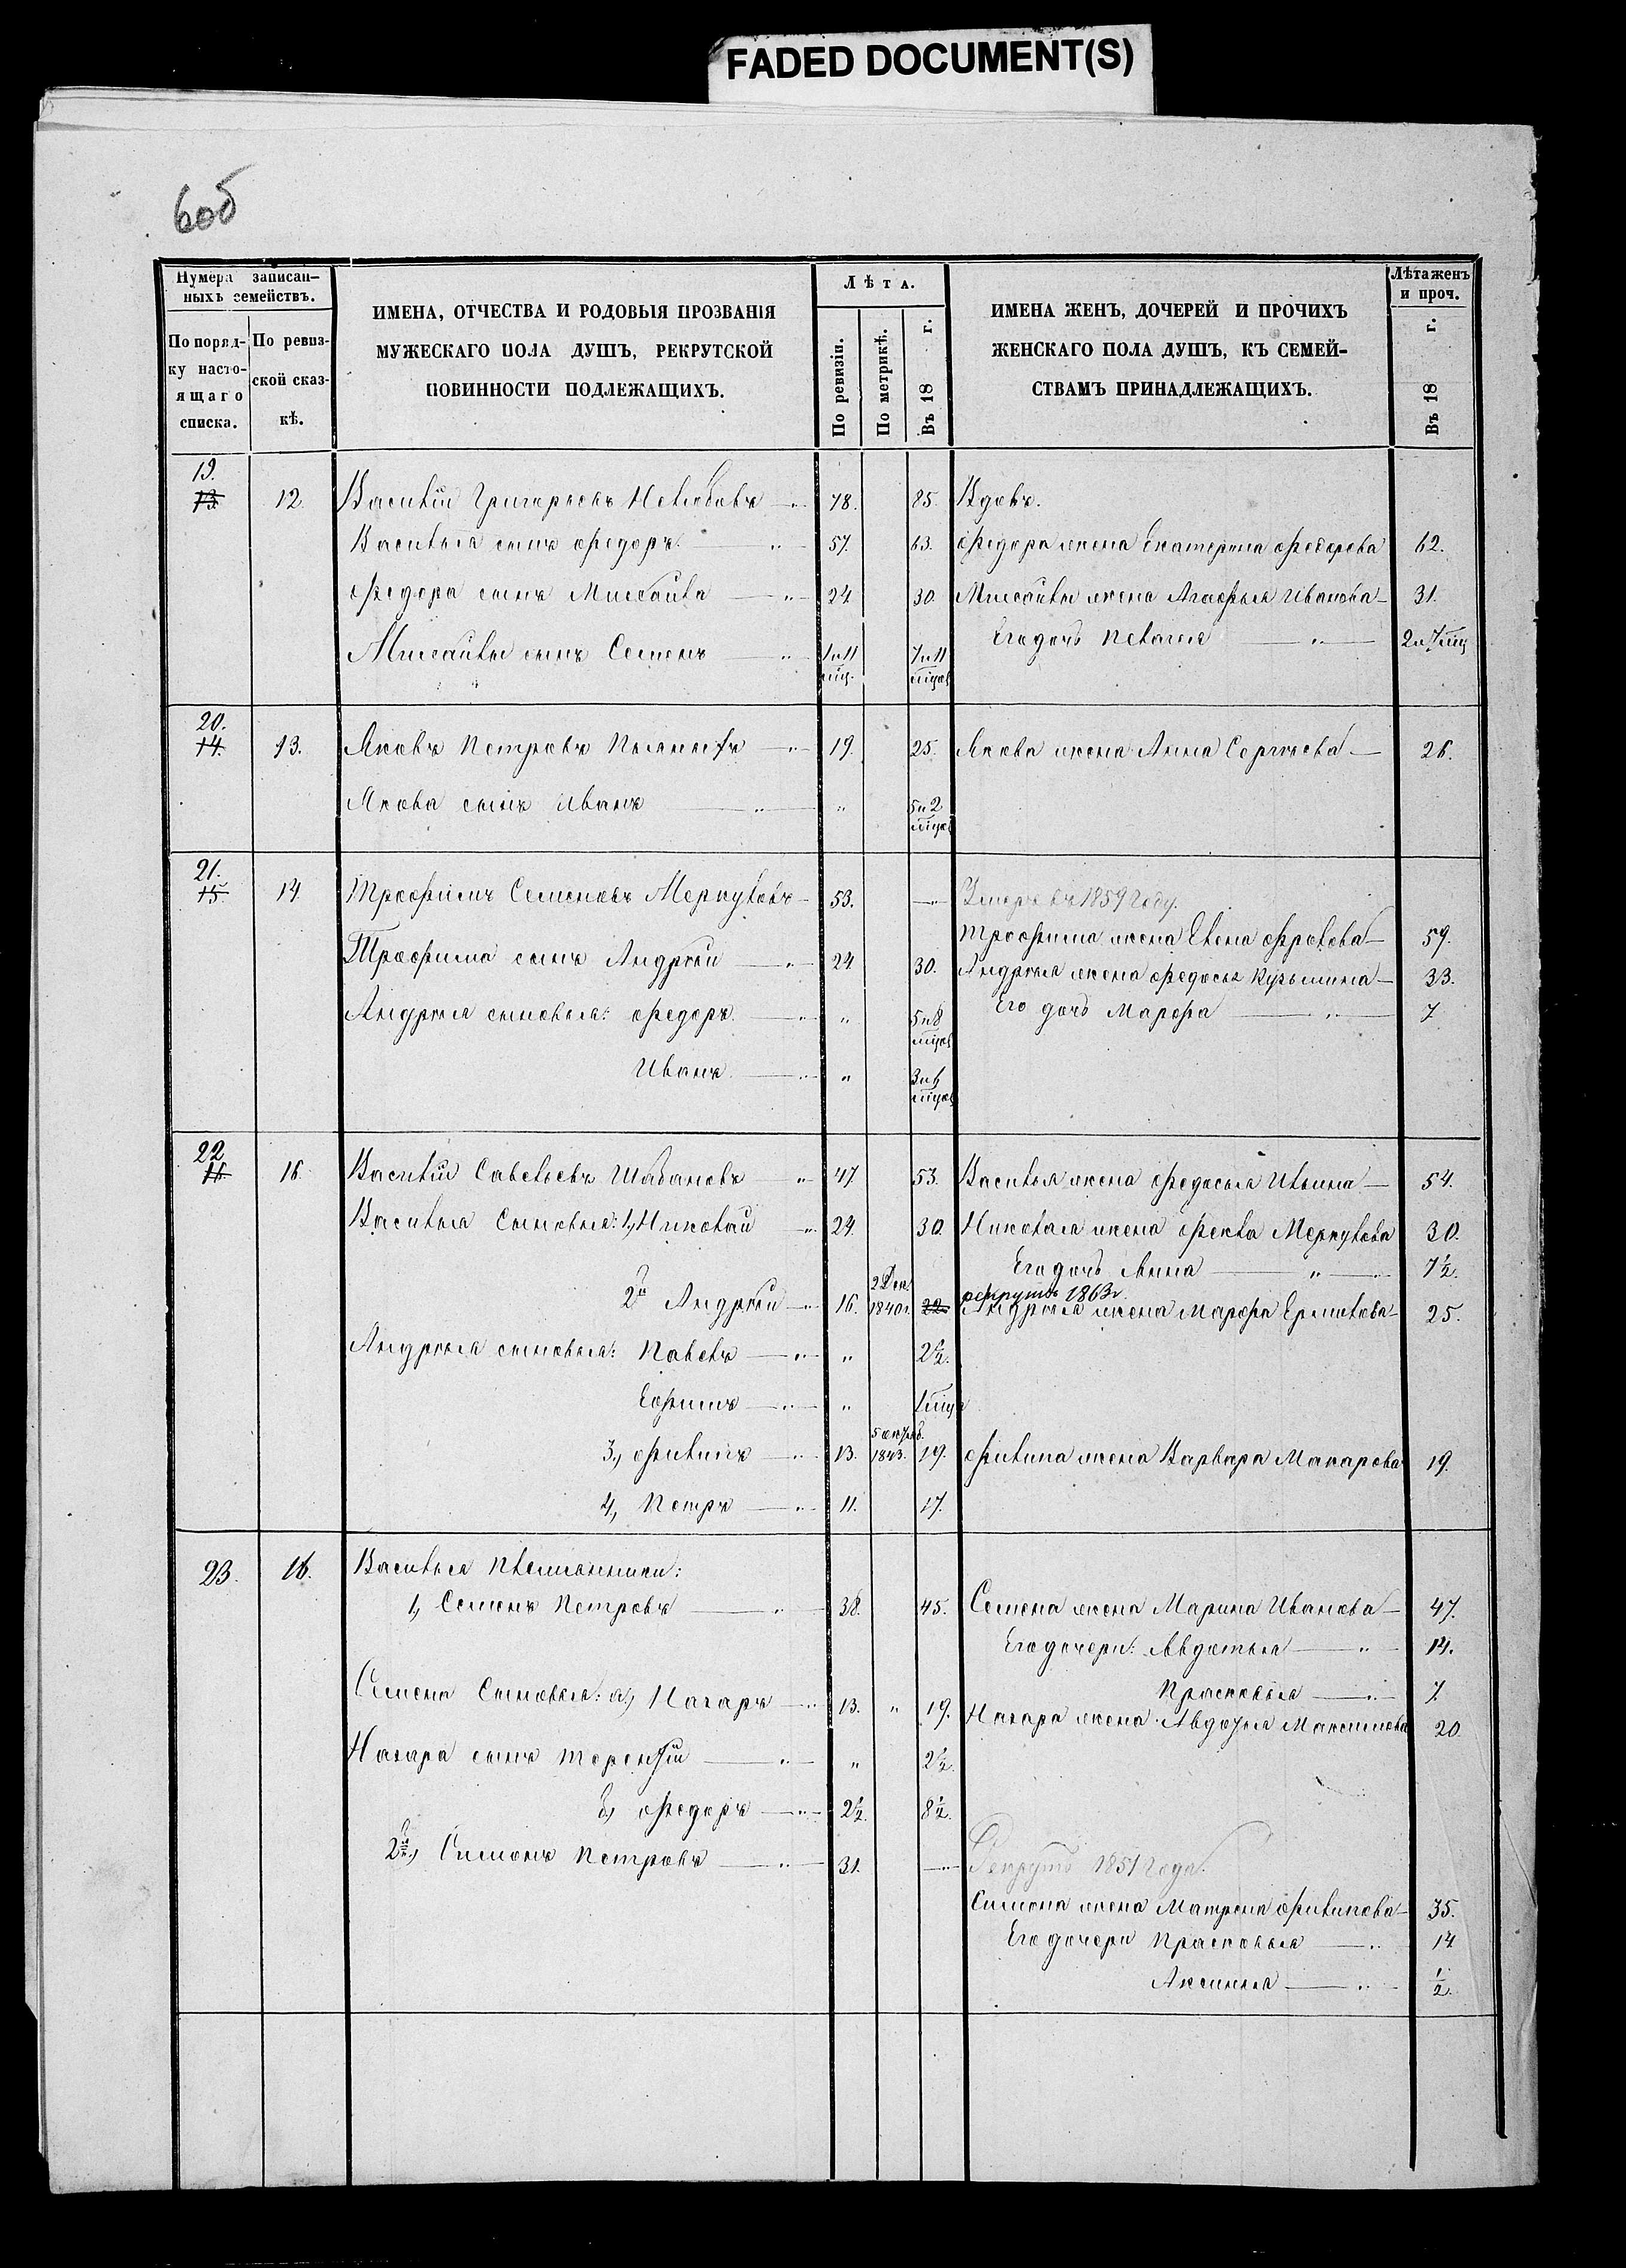 FADED DOCUMENT(S)
6об
Нумера записан-
ныхъ семействъ.
По поряд-
ку насто-
ящаго
списка.
По ревиз-
ской сказ-
кѣ.
ИМЕНА, ОТЧЕСТВА И РОДОВЫЯ ПРОЗВАНІЯ
МУЖЕСКАГО ПОЛА ДУШЪ, РЕКРУТСКОЙ
ПОВИННОСТИ ПОДЛЕЖАЩИХЪ.
Лѣта.
По ревизіи.
По метрикѣ.
Въ 18 г.
ИМЕНА ЖЕНЪ, ДОЧЕРЕЙ И ПРОЧИХЪ
ЖЕНСКАГО ПОЛА ДУШЪ, КЪ СЕМЕЙ-
СТВАМЪ ПРИНАДЛЕЖАЩИХЪ.
Лѣта женъ
и проч.
Въ 18 г.
19.
13. 12. Василій Григорьевъ 78. 85. Вдовъ.
Василья сынъ Федоръ 57. 63. Федора жена Екатерина Федорова 62.
Федора сынъ Михайла 24. 30. Михайлы жена Агафья Иванова 31.
Михайлы сынъ Семенъ 1 и 11 мц. 7 и 11 мцовъ Его дочь Пелагея 2 и 7 мцъ
20.
14. 13. Яковъ Петровъ 19. 25. Якова жена Анна Сергѣева 26.
Якова сынъ Иванъ " 5 и 2 мцов
21.
15. 14. Трофимъ Семеновъ Меркуловъ 53. Умеръ въ 1859 году.
Трофима жена Елена Фролова 59.
Трофима сынъ Андрей 24. 30. Андрея жена Федосья Кузьмина 33.
Андрея сыновья: Федоръ " 5 и 8 мцов Его дочь Марфа 7
Иванъ " мцов
22
16. 16. Василій Савельевъ Шабановъ 47 53. Василья жена Федосья Ильина 54.
Василья Сыновья: 1, Николай 24. 30. Николая жена Фекла Меркулова 30.
Его дочь Анна 7½.
рекрутъ 1863 г.
2й Андрей 16. 1840 г. 22. Андрея жена Марфа Ермилова 25.
Андрея сыновья: Павелъ " 2½.
Ефимъ " 1 мцъ
3, Филипъ 13. 5 октяб. 1843. 19. Филипа жена Варвара Макарова 19.
4, Петръ 11. 17.
23. 16. Василья Племянники:
1, Семенъ Петровъ 38. 45. Семена жена Марина Иванова 47.
Его дочери: Авдотья 14.
Прасковья 7.
Семена Сыновья: а, Назаръ 13. " 19. Назара жена Авдотья Максимова 20.
Назара сынъ Терентій " 2½.
б, Федоръ 2½. 8½.
2й, Симонъ Петровъ 31. Рекрутъ 1851 года.
Симона жена Матрена Филипова 35.
Его дочери Прасковья 14
Аксинья ½.